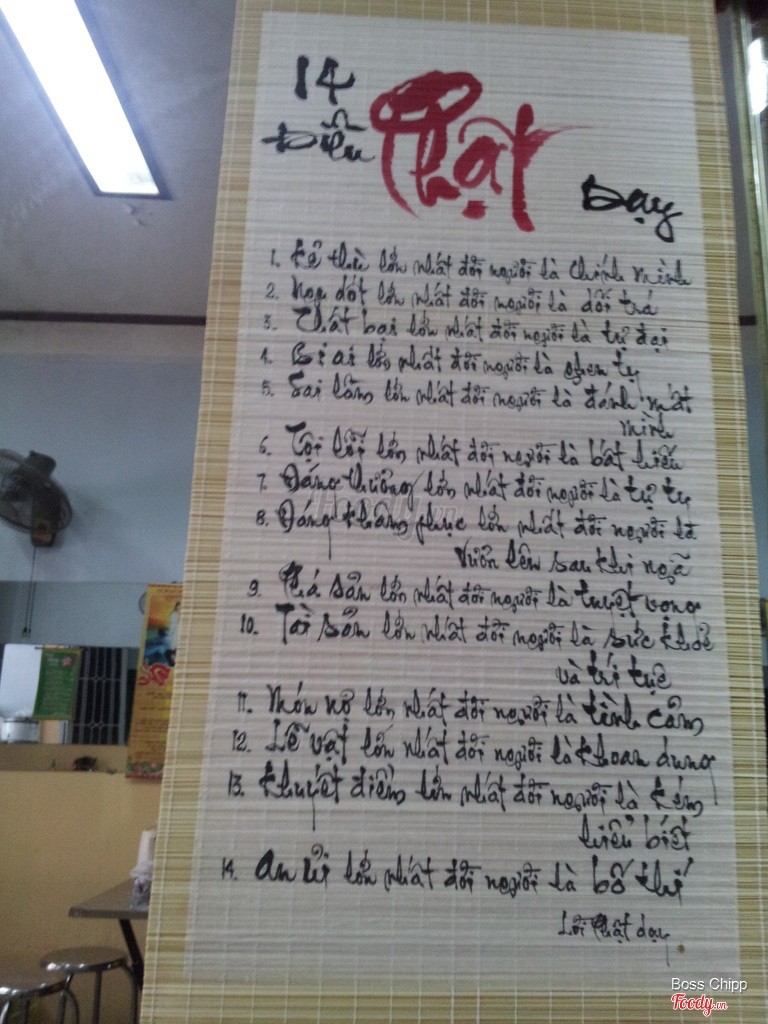 14
Điều Phật Dạy
1. Kẻ thù lớn nhất đời người là chính mình
2. Ngu dốt lớn nhất đời người là dối trá
3. Thất bại lớn nhất đời người là tự đại
4. Bi ai lớn nhất đời người là ghen tỵ
5. Sai lầm lớn nhất đời người là đánh mất
mình
6. Tội lỗi lớn nhất đời người là bất hiếu
7. Đáng thương lớn nhất đời người là tự ty
8. Đáng khâm phục lớn nhất đời người là
vươn lên sau khi ngã
9. Phá sản lớn nhất đời người là tuyệt vọng
10. Tài sản lớn nhất đời người là sức khỏe
và trí tuệ
11. Món nợ lớn nhất đời người là tình cảm
12. Lễ vật lớn nhất đời người là khoan dung
13. Khuyết điểm lớn nhất đời người là kém
hiểu biết
14. An ủi lớn nhất đời người là bố thí
Lời Phật dạy
Foody.vn
Boss Chipp
Foody.vn